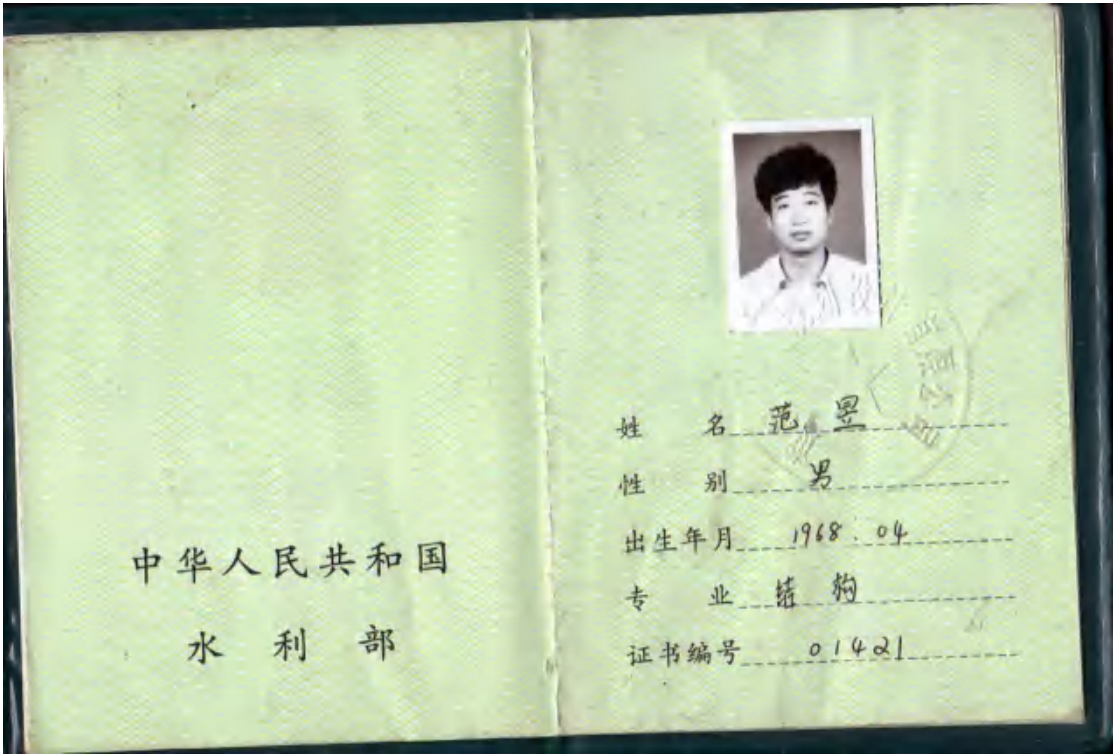 中华人民共和国
水利部
姓名 范昱
性别 男
出生年月 1968.04
专业 结构
证书编号 01421